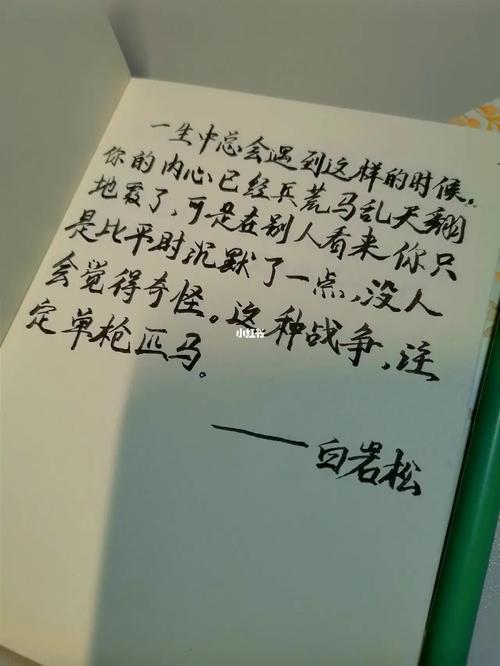 一生中总会遇到这样的时候,
你的内心已经兵荒马乱天翻
地覆了,可是在别人看来你只
是比平时沉默了一点,没人
会觉得奇怪。这种战争,注
定单枪匹马。
——白岩松
小红书